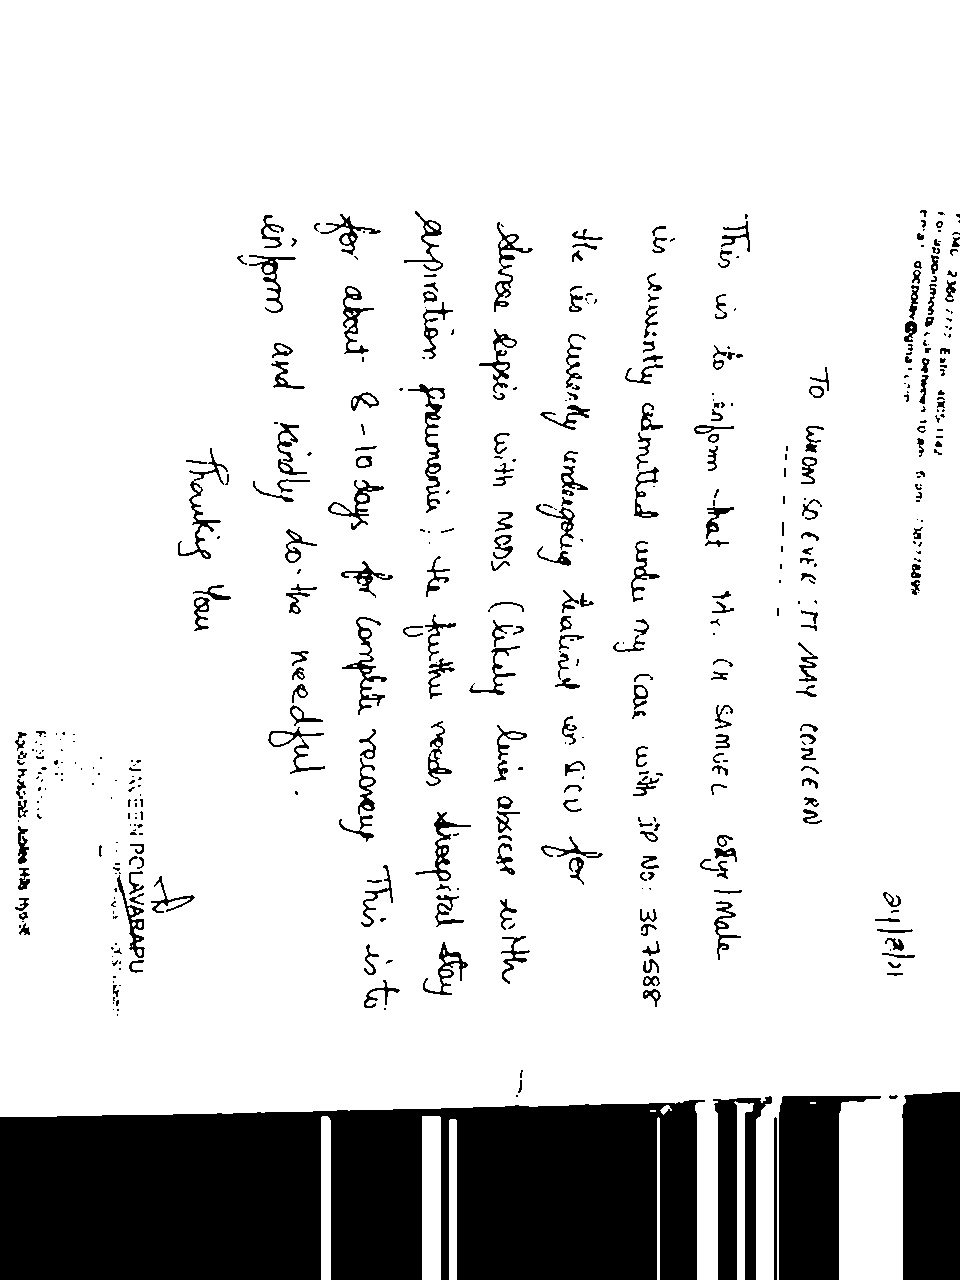 For appointments call between 10 am 6 pm
24/8/21
TO WHOM SO EVER IT MAY CONCERN
This is to inform that Mr. CH SAMUEL 68yr/Male
is currently admitted under my care with IP No: 367588
He is currently undergoing in SICU for
severe sepsis with MODS (likely liver abscess with
aspiration pneumonia). He further needs hospital stay
for about 8-10 days for complete recovery. This is to
inform and kindly do the needful.
Thanking You
NAVEEN POLAVARAPU
Apollo Hospitals Jubilee Hills Hyd-33